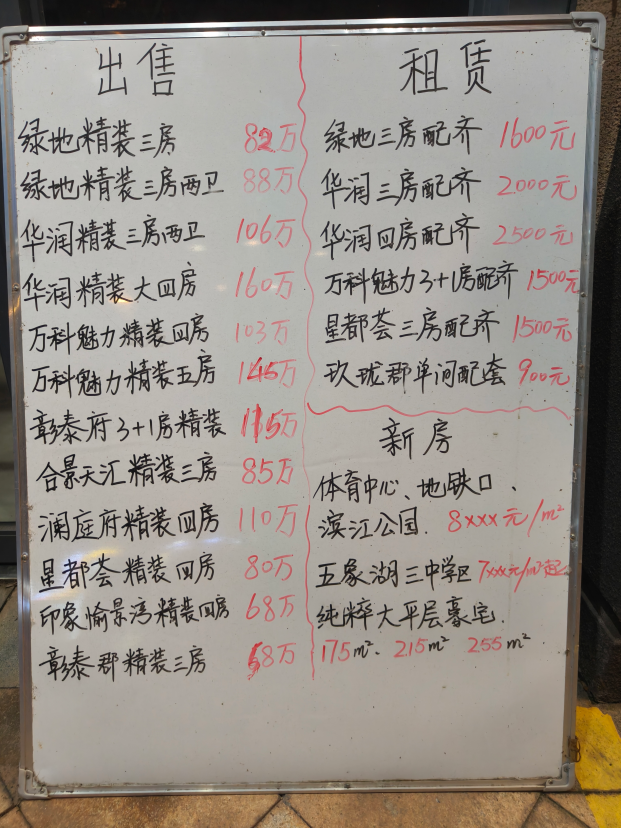 出售
绿地精装三房 82万
绿地精装三房两卫 88万
华润精装三房两卫 106万
华润精装大四房 160万
万科魅力精装四房 103万
万科魅力精装五房 145万
彰泰府3+1房精装 115万
合景天汇精装三房 85万
澜庭府精装四房 110万
星都荟精装四房 80万
印象愉景湾精装四房 68万
彰泰郡精装三房 68万
租赁
绿地三房配齐 1600元
华润三房配齐 2000元
华润四房配齐 2500元
万科魅力3+1房配齐 1500元
星都荟三房配齐 1500元
玖珑郡单间配套 900元
新房
体育中心、地铁口、
滨江公园. 8xxx元/m²
五象湖三中学区 7xxx元/m²起
纯粹大平层豪宅.
175m²、 215m² 255m²